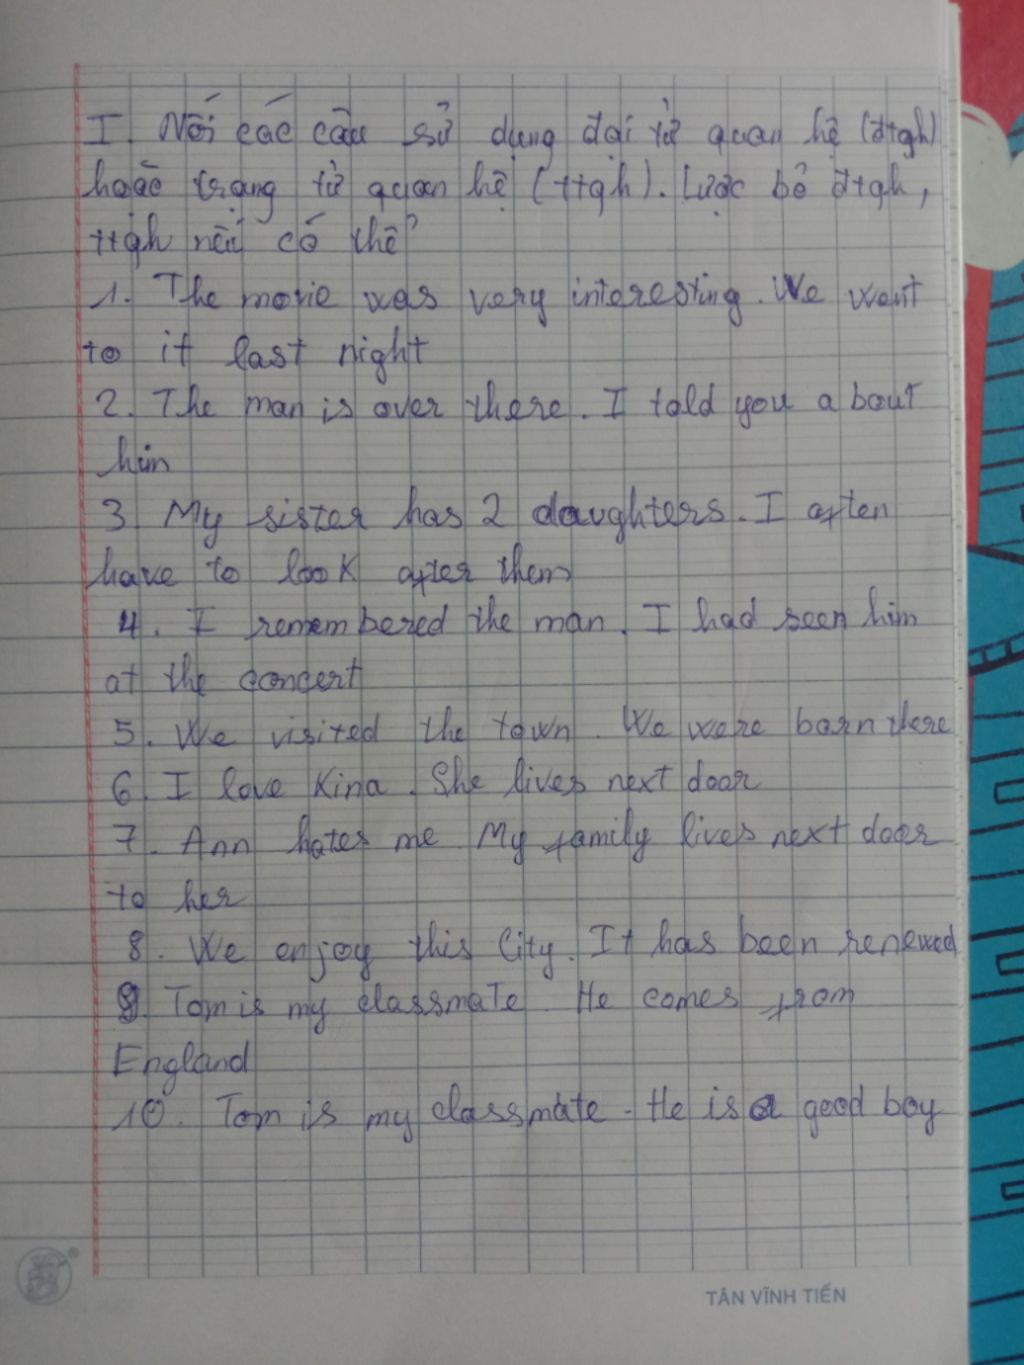 I. Nối các câu sử dụng đại từ quan hệ (đtqh)
hoặc trạng từ quan hệ (ttqh). Lược bỏ đtqh,
ttqh nếu có thể
1. The movie was very interesting. We went
to it last night
2. The man is over there. I told you about
him
3 My sister has 2 daughters. I often
have to look after them
4. I remembered the man. I had seen him
at the concert
5. We visited the town. We were born there
6. I love Kina. She lives next door
7. Ann hates me My family lives next door
to her
8. We enjoy this City. It has been renewed
9. Tom is my classmate He comes from
England
10. Tom is my classmate. He is a good boy
TÂN VĨNH TIẾN